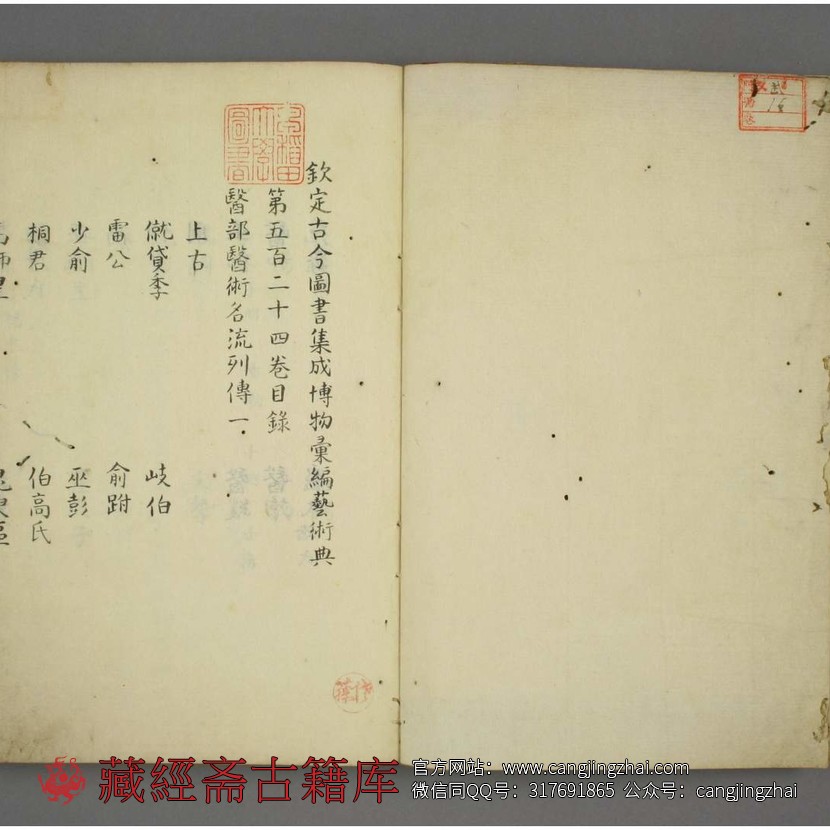 欽定古今圖書集成博物彙編藝術典
第五百二十四卷目錄
醫部醫術名流列傳一
上古
僦貸季 岐伯
雷公 俞跗
少俞 巫彭
桐君 伯高氏
馬師皇 鬼臾區
早稻田大學圖書
藏經斋古籍库
官方网站：www.cangjingzhai.com
微信同QQ号：317691865 公众号：cangjingzhai